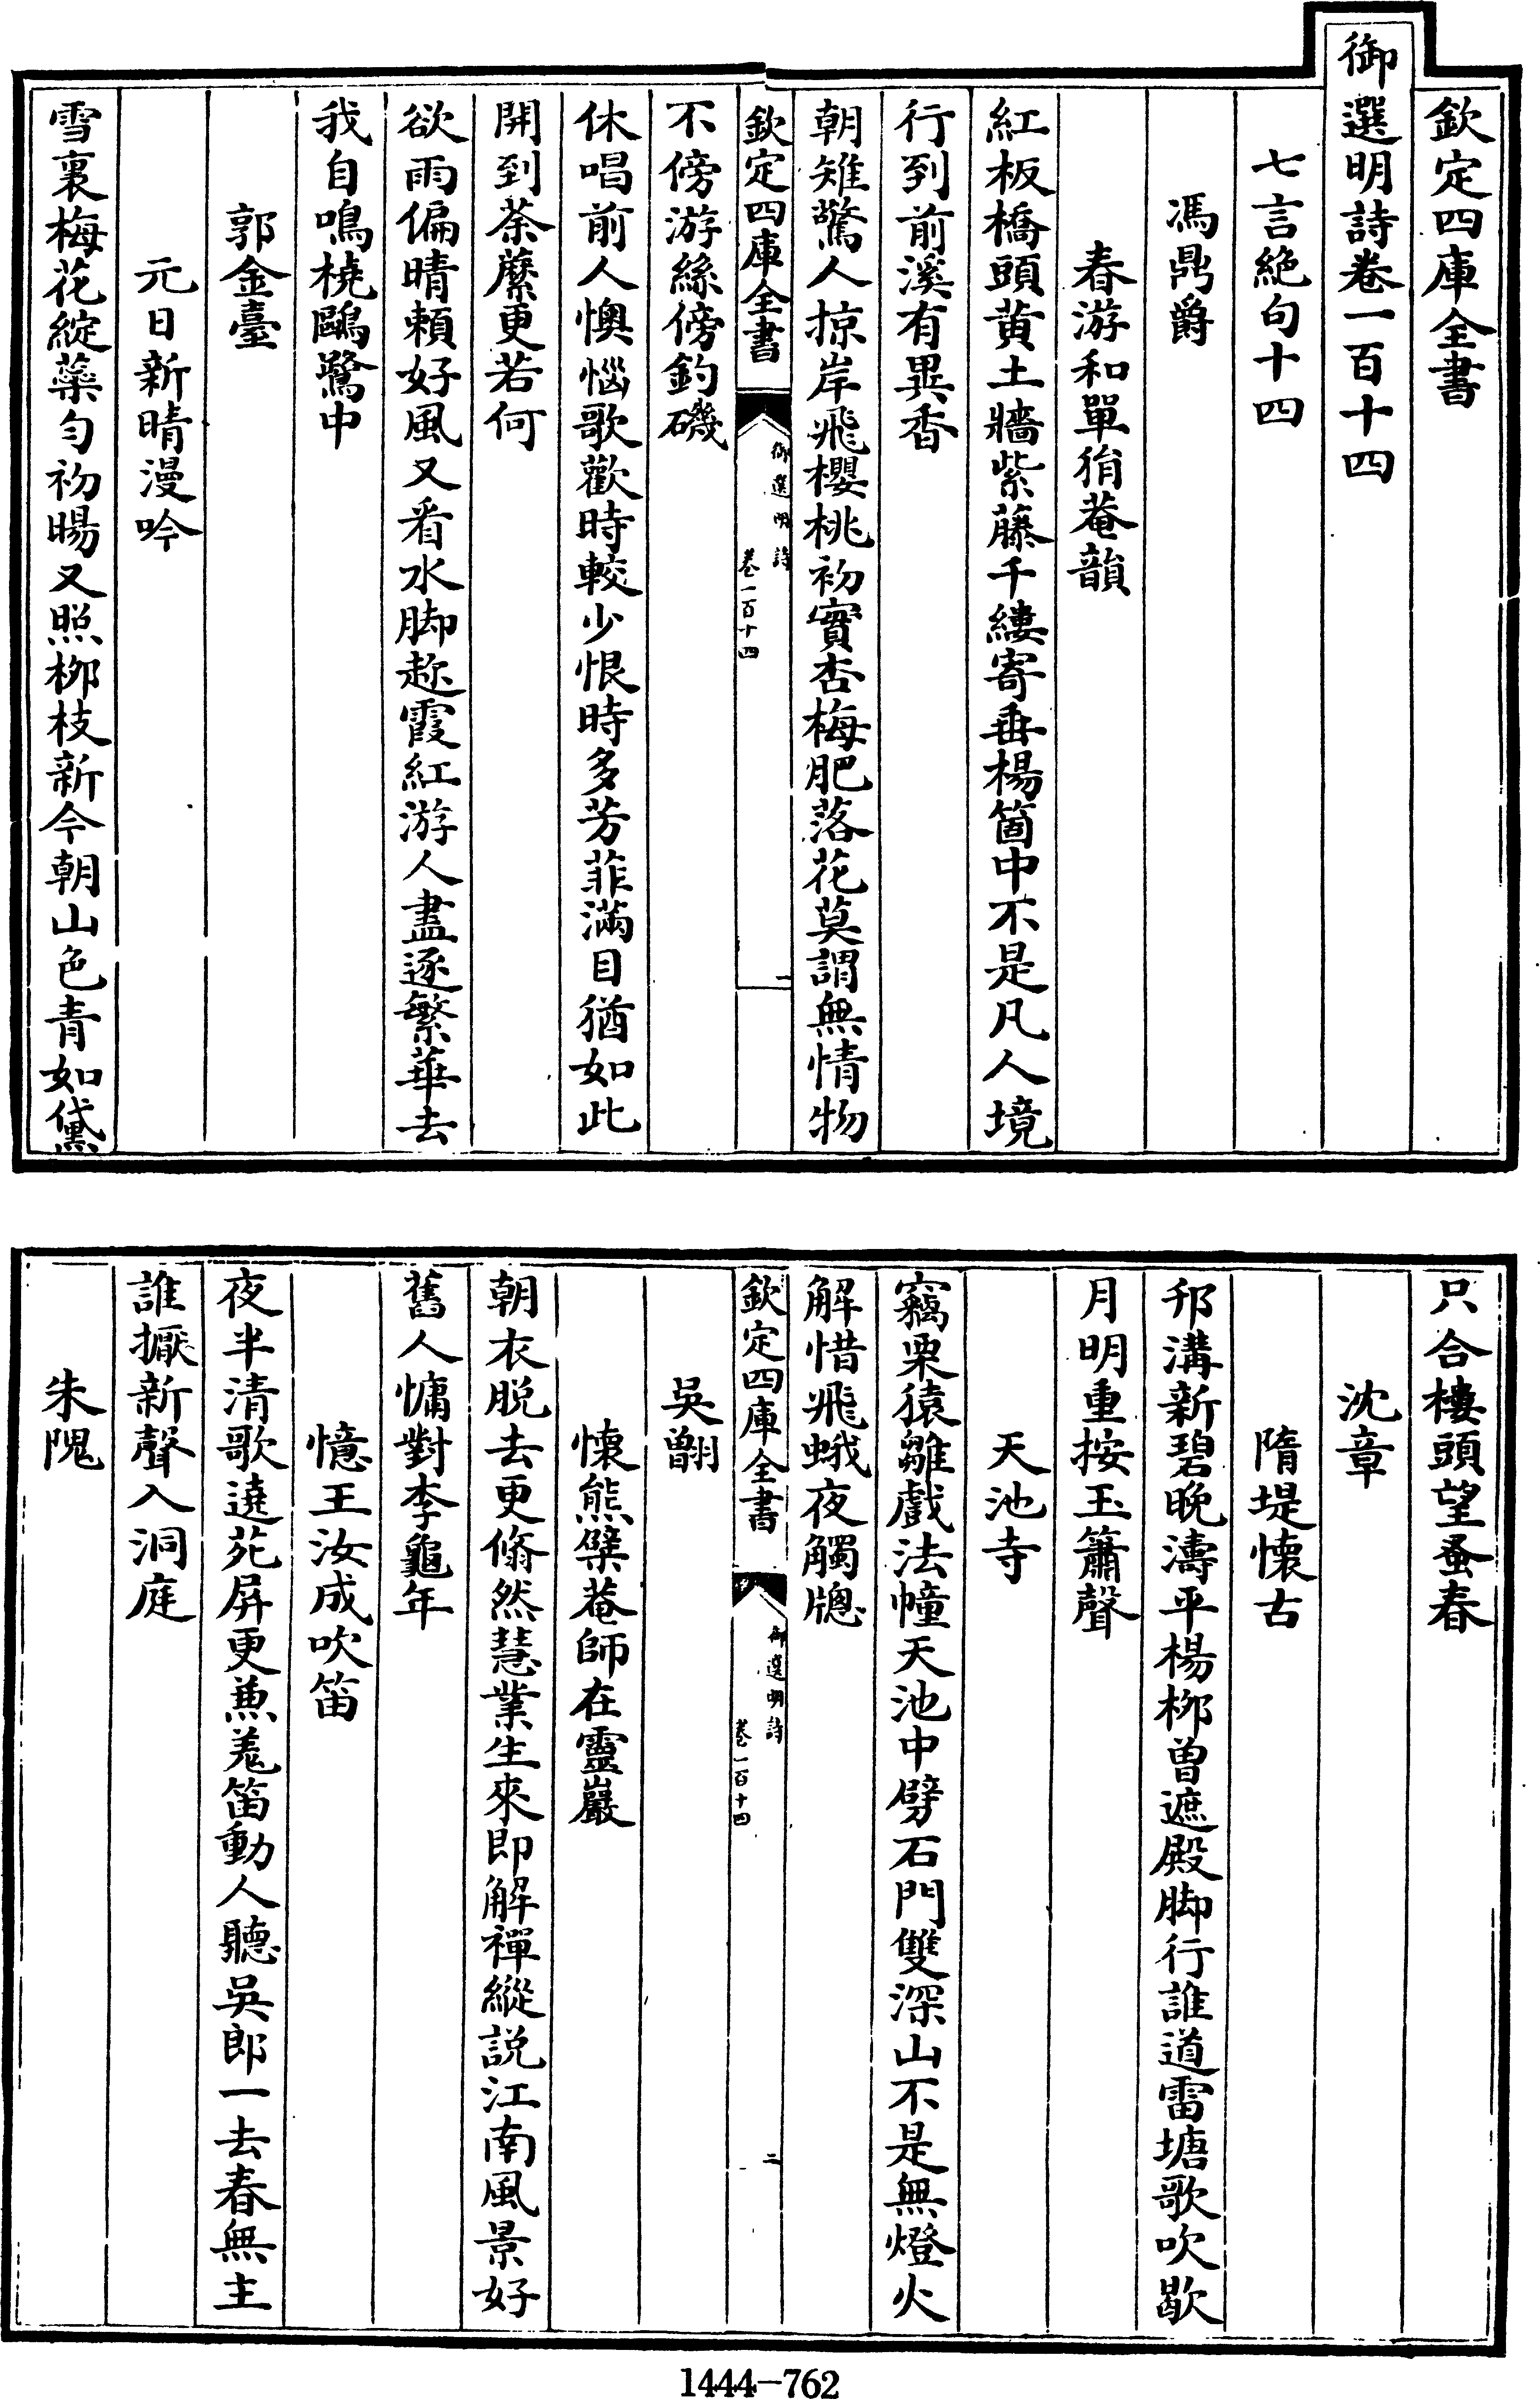 欽定四庫全書
御選明詩卷一百十四
七言絶句十四
馮鼎爵
春游和單狷菴韻
紅板橋頭黃土牆紫藤千縷寄垂楊箇中不是凡人境
行到前溪有異香
朝雉驚人掠岸飛櫻桃初實杏梅肥落花莫謂無情物
欽定四庫全書
御選明詩
卷一百十四
一
不傍游絲傍釣磯
休唱前人懊惱歌歡時較少恨時多芳菲滿目猶如此
開到荼蘼更若何
欲雨偏晴頼好風又看水脚趂霞紅游人盡逐繁華去
我自鳴橈鷗鷺中
郭金臺
元日新晴漫吟
雪裏梅花綻藥勻初暘又照柳枝新今朝山色青如黛
只合樓頭望蚤春
沈章
隋堤懷古
邗溝新碧晚濤平楊柳曽遮殿脚行誰道雷塘歌吹歇
月明重按玉簫聲
天池寺
竊栗猿雛戲法幢天池中劈石門雙深山不是無燈火
解惜飛蛾夜觸牕
欽定四庫全書
御選明詩
卷一百十四
二
吳翻
懷熊檗菴師在靈巖
朝衣脱去更翛然慧業生來即解禪縱説江南風景好
舊人慵對李龜年
憶王汝成吹笛
夜半清歌遶苑屏更兼羗笛動人聽吳郎一去春無主
誰擫新聲入洞庭
朱隗
1444-762